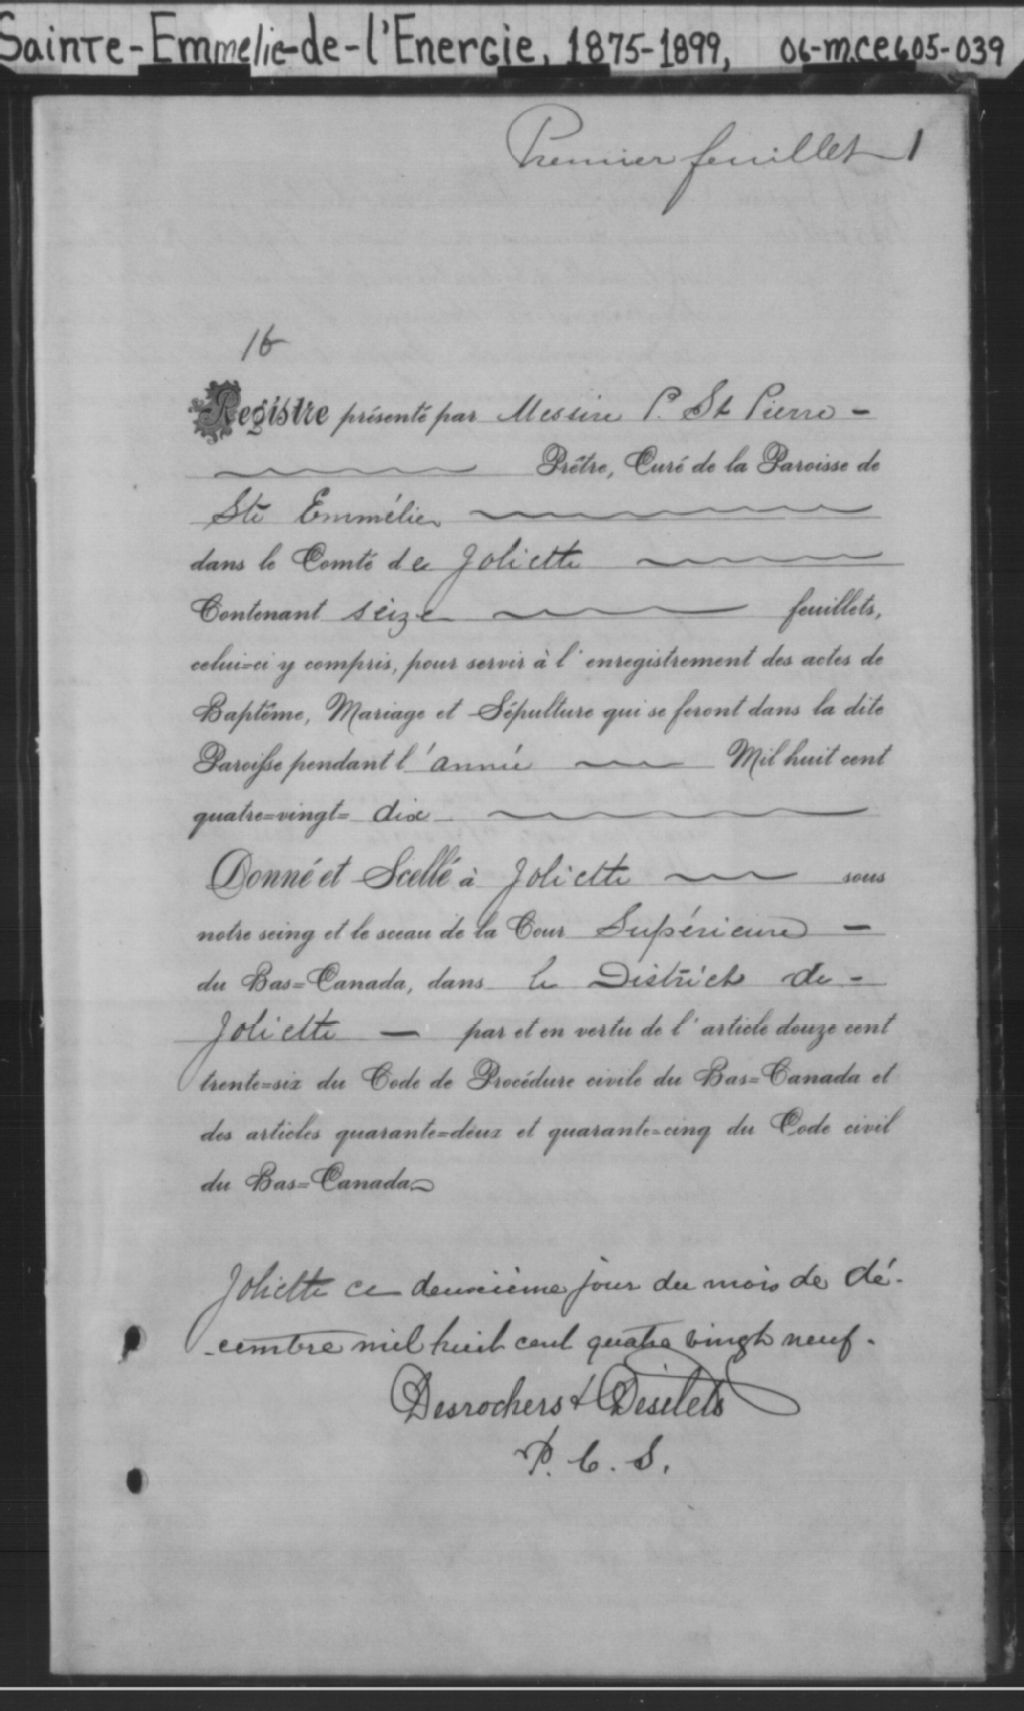 Sainte-Emmelie-de-l'Energie, 1875-1899, 06-M.CE605-039
Premier feuillet 1
16
Registre présenté par Messire P. St Pierre -
Prêtre, Curé de la Paroisse de
Ste Emmélie
dans le Comté de Joliette
Contenant seize feuillets,
celui=ci y compris, pour servir à l'enregistrement des actes de
Baptême, Mariage et Sépulture qui se feront dans la dite
Paroisse pendant l'année Mil huit cent
quatre=vingt= dix
Donné et Scellé à Joliette sous
notre seing et le sceau de la Cour Supérieure -
du Bas=Canada, dans le District de -
Joliette - par et en vertu de l'article douze cent
trente=six du Code de Procédure civile du Bas=Canada et
des articles quarante=deux et quarante=cinq du Code civil
du Bas=Canada
Joliette ce deuxième jour du mois de dé-
-cembre mil huit cent quatre vingt neuf.
Desrochers & Desilets
P. C. S.